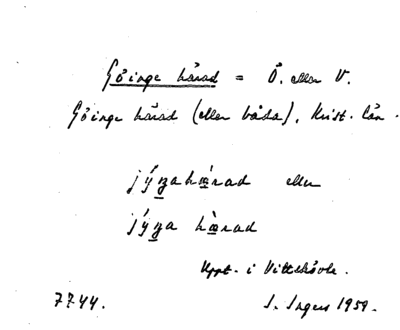 Göinge härad = Ö. eller V.
Göinge härad (eller båda), Krist. län.
jýŋahæ̀rad eller
jýŋa hæ̀rad
Uppt. i Vittskövle.
7744. I. Ingers 1959.